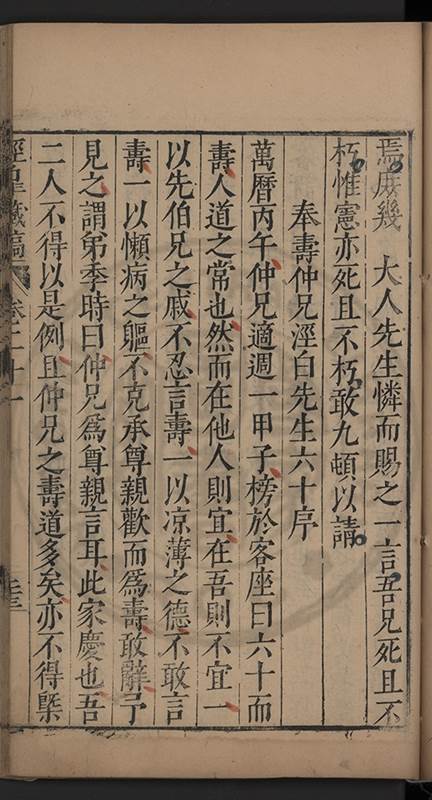 焉庶幾　大人先生憐而賜之一言吾兄死且不
朽惟憲亦死且不朽敢九頓以請
奉壽仲兄涇白先生六十序
萬曆丙午仲兄適週一甲子榜於客座曰六十而
壽人道之常也然而在他人則宜在吾則不宜一
以先伯兄之戚不忍言壽一以凉薄之德不敢言
壽一以懶病之軀不克承尊親歡而爲壽敢辭予
見之謂弟季時曰仲兄爲尊親言耳此家慶也吾
二人不得以是例且仲兄之壽道多矣亦不得槩
涇臯藏稿
卷二十一